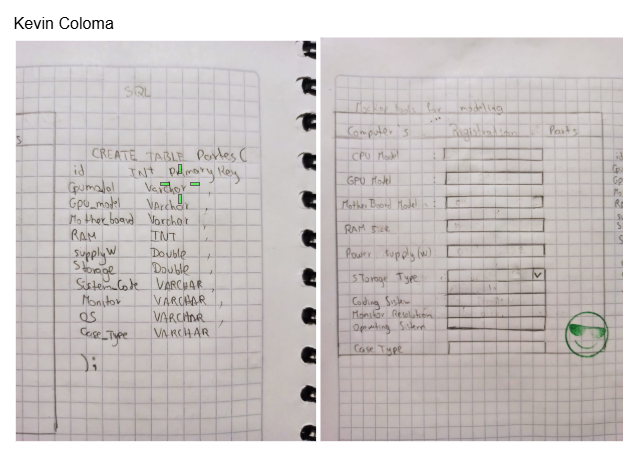 Kevin Coloma
SQL
CREATE TABLE Partes (
id INT Primary Key
Cpumodel Varchar ,
Gpu_model VArchar ,
Mother_board Varchar ,
RAM INT ,
supplyW Double ,
Storage Double ,
Sistem_Code VARCHAR ,
Monitor VARCHAR ,
OS VARCHAR ,
Case_Type VARCHAR
);
Mockup tools for modeling
Computer's Registration Parts
CPU Model :
GPU Model :
Mother Board Model :
RAM Size
Power supply (W)
STorage Type :
Coding Sistem
Monitor Resolution
Operating Sistem
Case Type